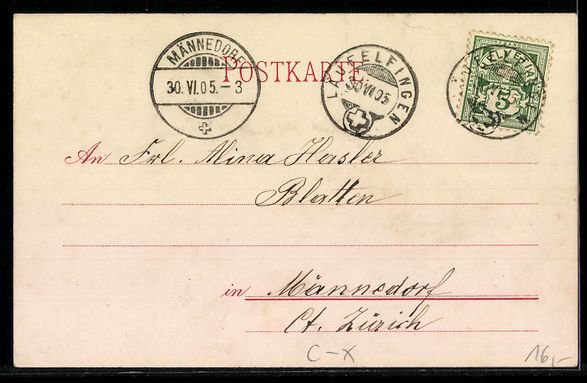 MÄNNEDORF
30.VI.05.-3
POSTKARTE
LÄUFELFINGEN
30 VI 05
5
An Frl. Mina Hasler
Blatten
in Männedorf
Ct. Zürich
C-X
16,-